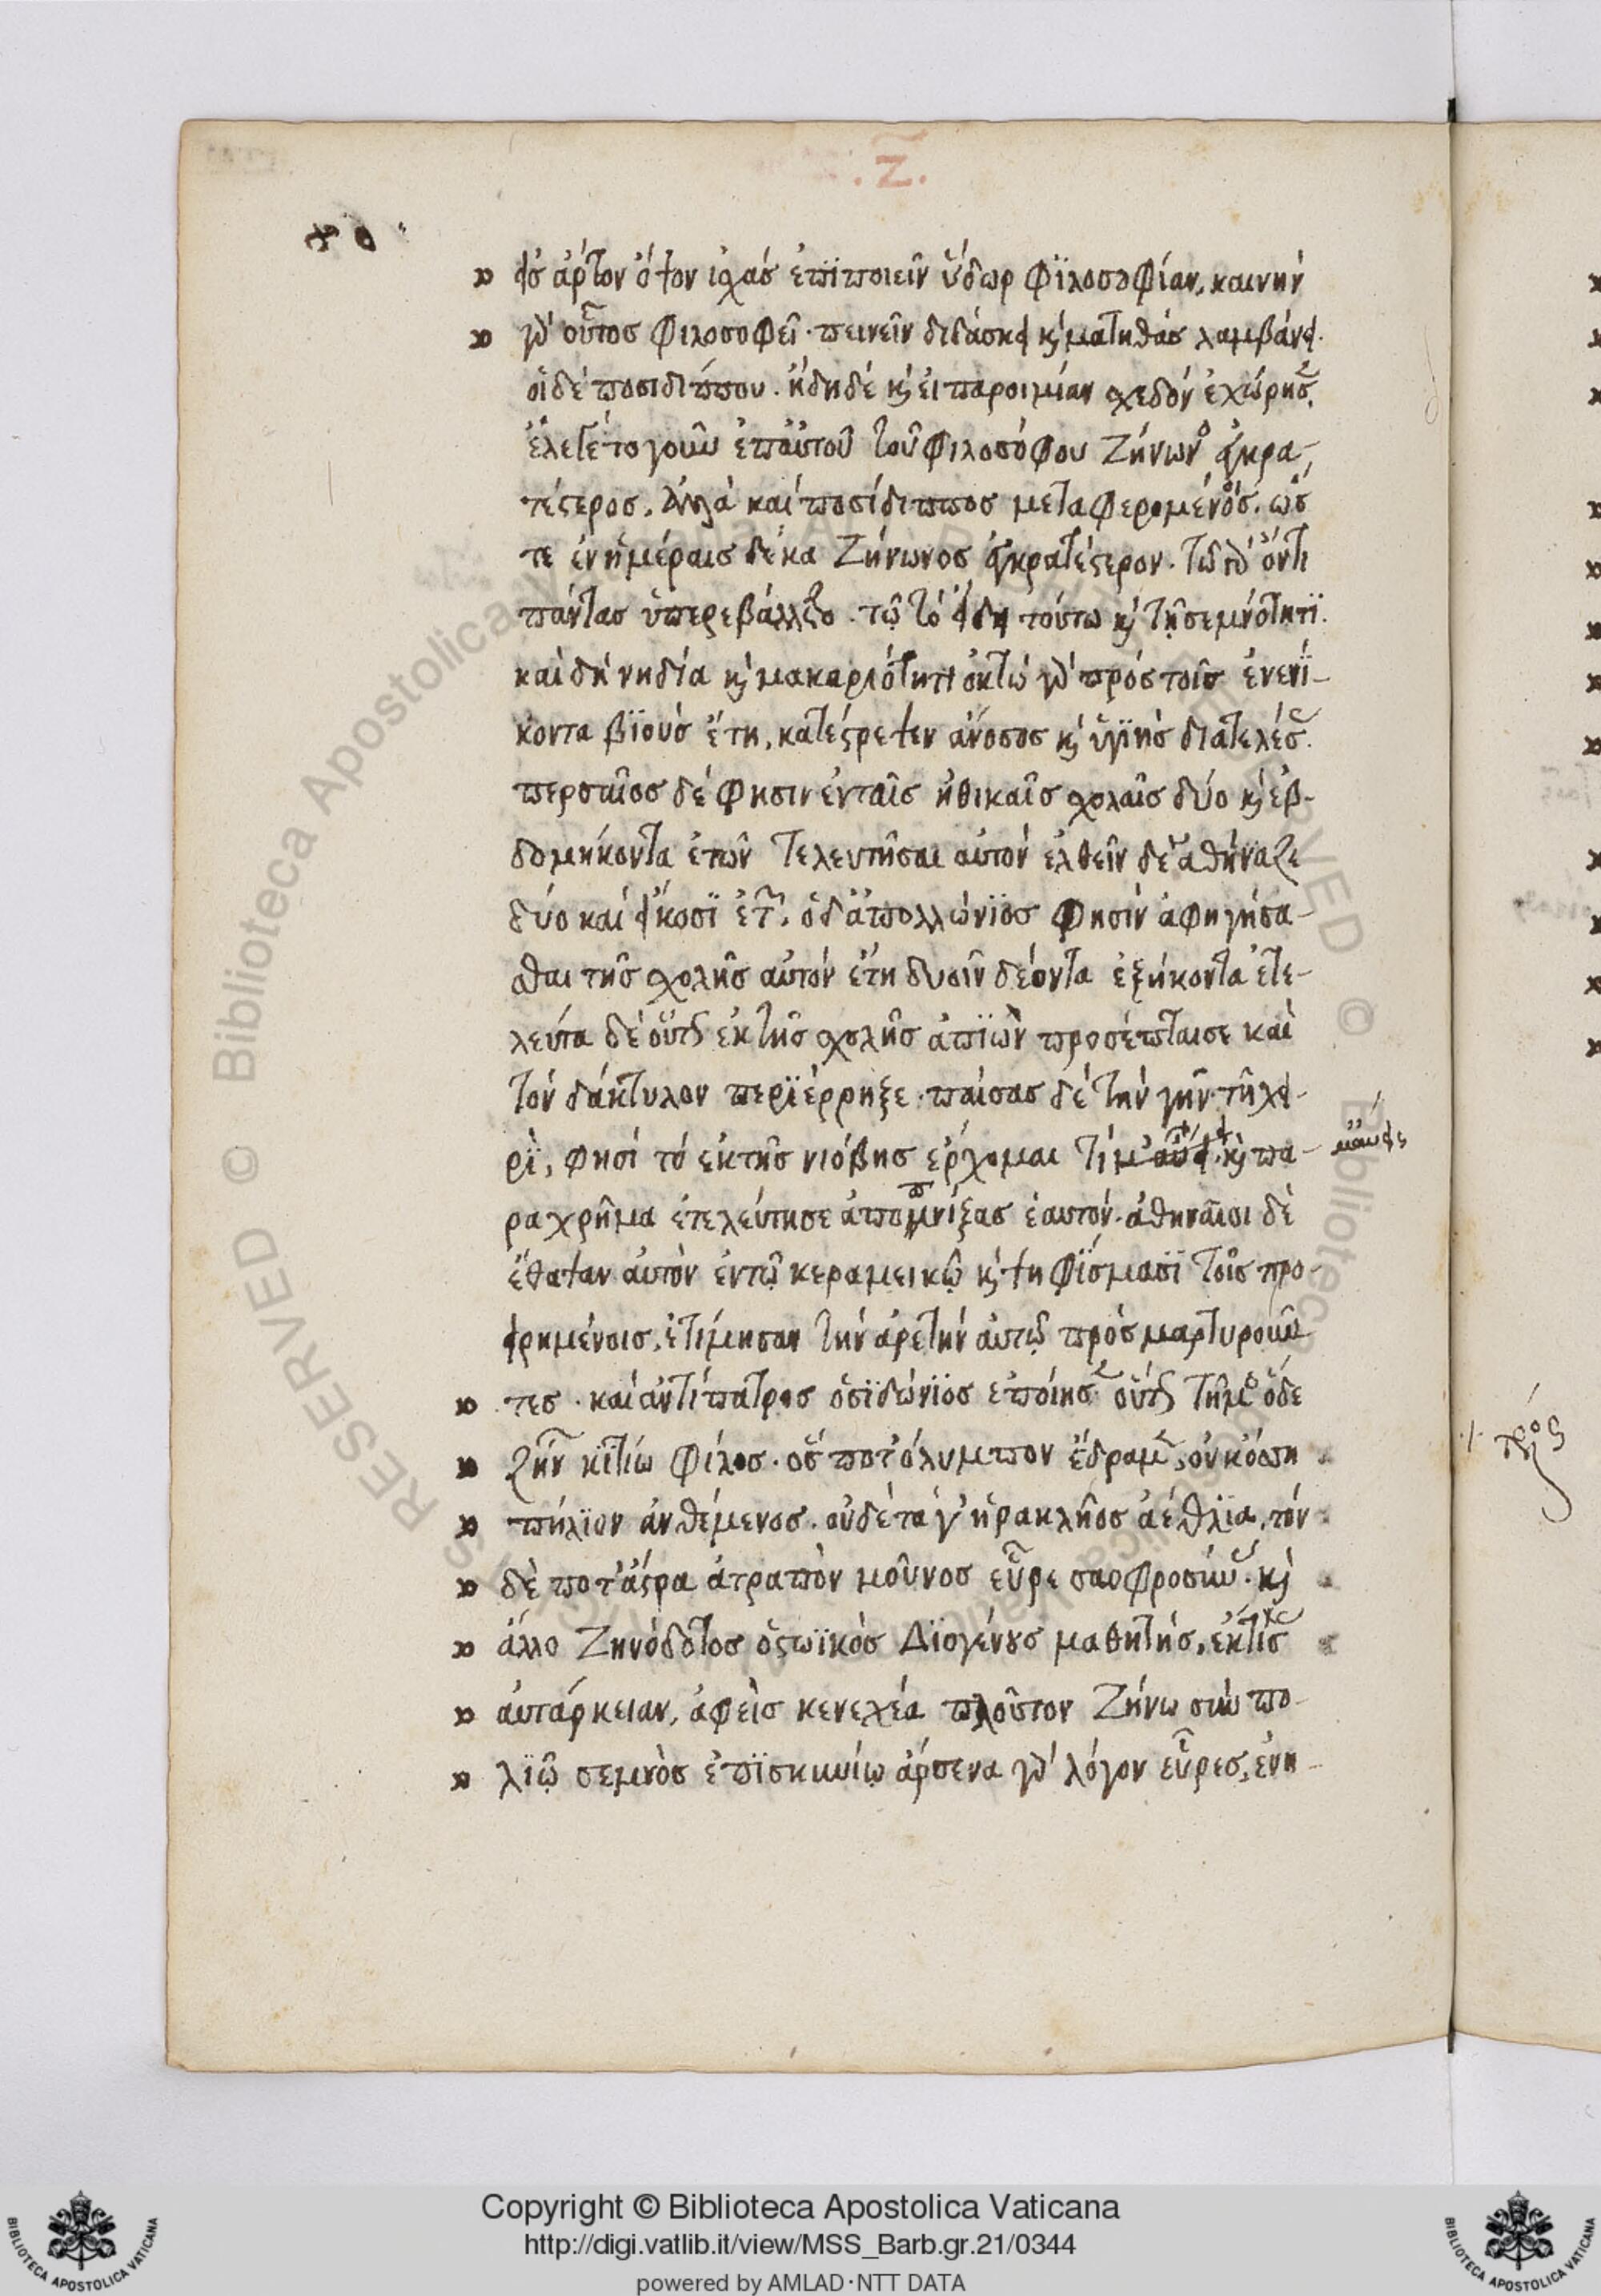 .ζ.
εἷσ ἄρτον ὄψον ἰσχάσ ἐπϊπιεῖν ὕδωρ φϊλοσοφίαν, καινὴν
γὰρ οὗτος φιλοσοφεῖ· πεινεῖν διδάσκει καὶ μαθητὰς λαμβάνει·
οἱ δὲ ποσιδίππου. ἤδη δὲ καὶ εἰ παροιμίαν σχεδὸν ἐχώρησεν,
ἐλέγετο γοῦν ἐπ' αὐτοῦ τοῦ φιλοσόφου Ζήνωνος ἐγκρα-
τέστερος. ἀλλὰ καὶ ποσίδιππος μεταφερομένοις. ὥσ
τε ἐν ἡμέραις δέκα Ζήνωνος ἐγκρατέστερον. τῶ δὲ ὄντι
πάντας ὑπερεβάλλετο. τῷ τὸ εἴδει τούτω καὶ τῇ σεμνότητϊ.
καὶ δὴ νηδία καὶ μακαριότητι ὀκτὼ γὰρ πρὸς τοῖς ἐνενή-
κοντα βϊοὺς ἔτη, κατέστρεψεν ἄνοσος καὶ ὑγϊὴς διατελέσας.
περσαῖος δέ φησιν ἐν ταῖς ἠθικαῖς σχολαῖς δύο καὶ ἑβ-
δομήκοντα ἐτῶν τελευτῆσαι αὐτὸν ἐλθεῖν δὲ ἀθήναζε
δύο καὶ εἴκοσϊ ἐτῶν. ὁ δ' ἀπολλώνϊος φησὶν ἀφηγήσα-
σθαι τῆς σχολῆς αὐτὸν ἔτη δυσῖν δέοντα ἑξήκοντα ἐτε-
λεύτα δὲ οὕτως ἐκ τῆς σχολῆς ἀπϊὼν προσέπταισε καὶ
τὸν δάκτυλον περϊέρρηξε. παίσας δὲ τὴν γῆν τῇ χει-
ρὶ, φησὶ τὸ ἐκ τῆς νιόβης ἔρχομαι τί μ' αὔεις. καὶ πα-
ραχρῆμα ἐτελεύτησε ἀποπνίξας ἑαυτόν. ἀθηναῖοι δὲ
ἔθαψαν αὐτὸν ἐν τῷ κεραμεικῷ καὶ ψηφΐσμασϊ τοῖς προ-
ειρημένοις, ἐτίμησαν τὴν ἀρετὴν αὐτῷ προσμαρτυροῦν
τες. καὶ ἀντίπατρος ὁ σϊδώνϊος ἐποίησεν οὕτως τῆμος ὅδε
ζήν κϊτίω φίλος. ὅς ποτ' ὄλυμπον ἔδραμεν, οὐκ ὄσση
πήλϊον ἀνθέμενος. οὐδὲ τά γ' ἡρακλῆος ἀέθλϊα, τὸν
δὲ ποτ' ἄστρα ἀτραπὸν μοῦνος εὗρε σαοφροσύνης. καὶ
ἄλλο Ζηνόδοτος ὁ στωϊκὸς Δϊογένους μαθητής, ἔκτισας
αὐτάρκειαν, ἀφεὶς κενεχέα πλοῦτον Ζήνω σὺν πο-
λϊῷ σεμνὸς ἐπϊσκυνίῳ ἄρσενα γὰρ λόγον εὗρες, ἐνη-
Copyright © Biblioteca Apostolica Vaticana
http://digi.vatlib.it/view/MSS_Barb.gr.21/0344
powered by AMLAD·NTT DATA